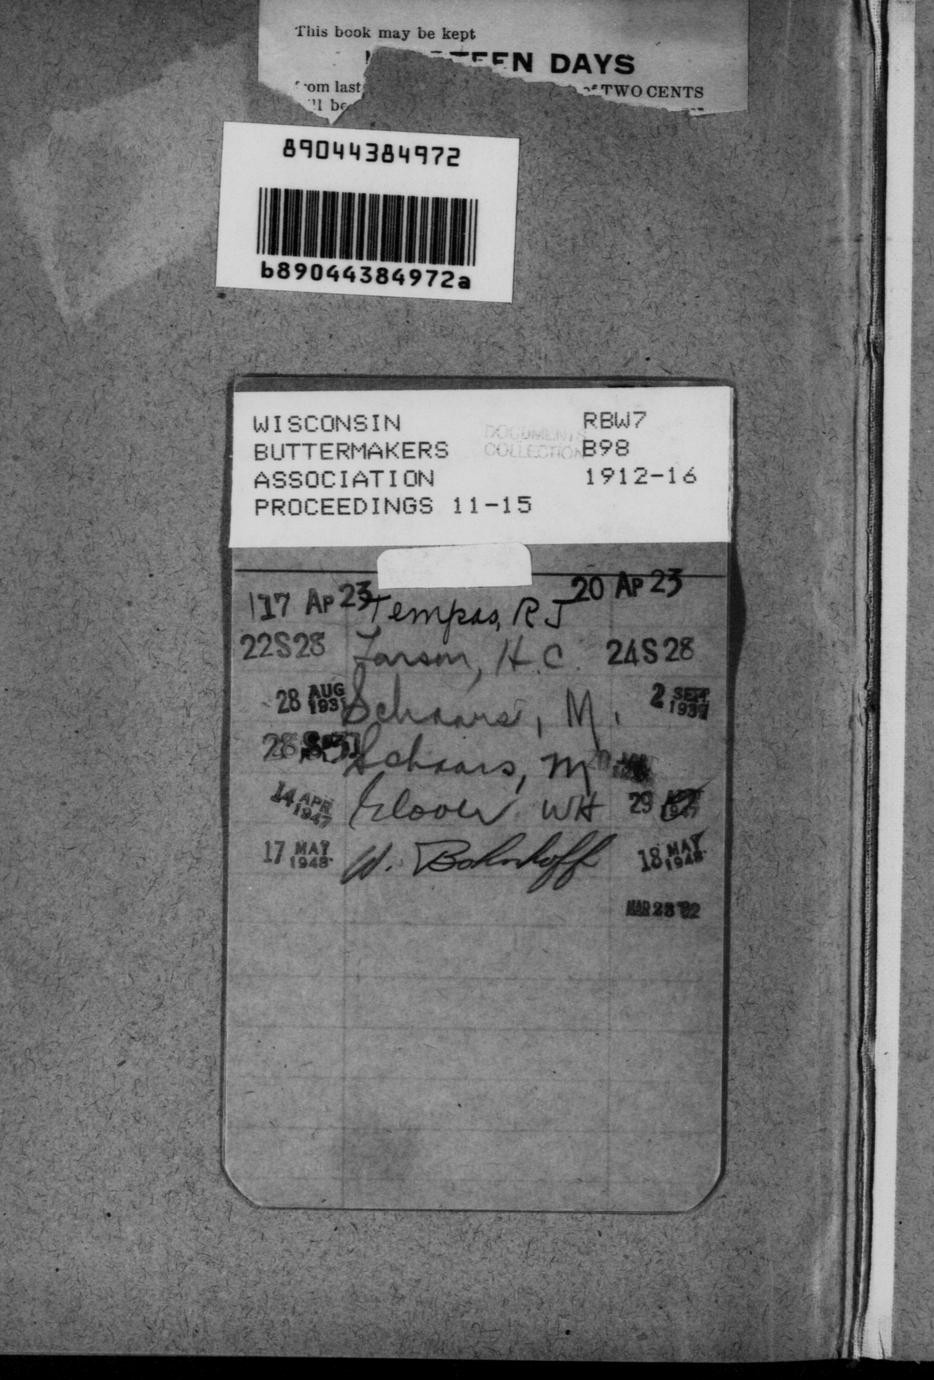 This book may be kept
TEEN DAYS
from last
of TWO CENTS
89044384972
b89044384972a
WISCONSIN RBW7
BUTTERMAKERS B98
ASSOCIATION 1912-16
PROCEEDINGS 11-15
DOCUMENTS
COLLECTION
17 Ap 23 Tempas, R J 20 Ap 23
22 S 28 Larson, H. C. 24 S 28
28 AUG 1931 Schaars, M. 2 SEP 1931
28 Schaars, M
14 APR 1947 Glover WH 29 1947
17 MAY 1948 W. Bohnhoff 18 MAY 1948